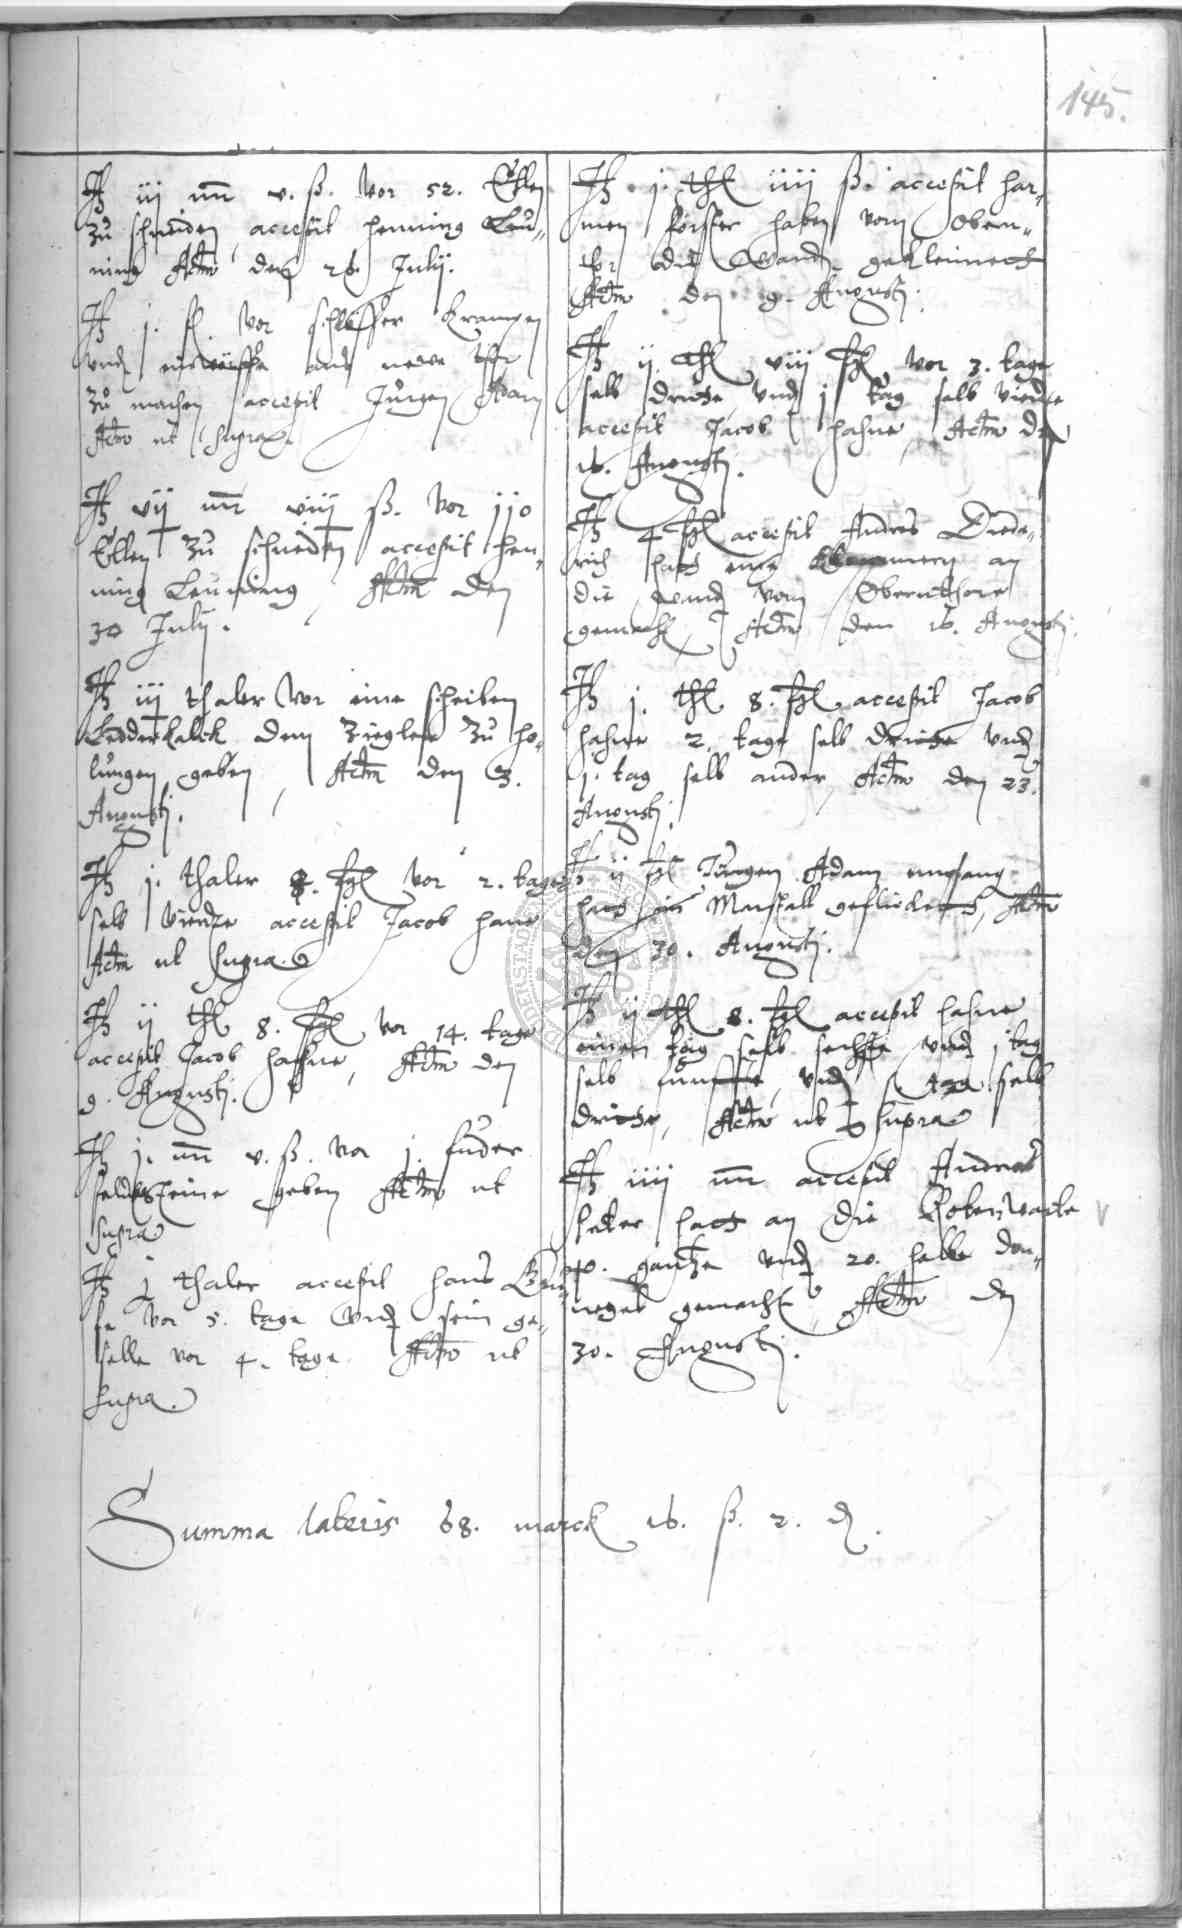 145.
It iij mr v. ß. vor 52. Ehlen
zu schneiden accepit Henning Leu-
ning Actum den 26. Julij.
It j. fl vor schleiffer
und und newe
zu machen accepit Jürgen Adam
Actum ut supra
It vij mr viij ß. vor 110
Ellen zu schneiden accepit Hen-
ning Leuning, Actum den
30 Julij.
It iij thaler vor eine scheiben
Ledderkalck dem Ziegler zu Ho-
lungen geben, Actum den 3.
Augusti.
It j. thaler 8. ßgl vor 2. tage
selb vierdte accepit Jacob Hane
Actum ut supra.
It ij thl 8. ßgl vor 14. tage
accepit Jacob Hahne, Actum den
9. Augusti.
It j. mr v. ß. vor j. fuder
feldtsteine geben Actum ut
supra
It j thaler accepit Hans
vor 5. tage und sein ge-
selle vor 4. tage Actum ut
supra.
It j. thl iiij ß. accepit Har-
men förster haben vorm Obern-
tor die Wandt gekleimett
Actum den 9. Augusti.
It ij. thl viij ßgl vor 3. tage
selb dritte und j tag selb vierdte
accepit Jacob Hahne, Actum den
16. Augusti.
It 4 ßgl accepit Andres Diede-
rich hatt eine an
die wandt vorm Obernthore
gemacht, Actum den 16. Augusti.
It j. thl 8. ßgl accepit Jacob
Hahne 2. tage selb dritte und
j. tag selb ander, Actum den 23.
Augusti.
It ij ßgl Jürgen Adam
hatt im Marstall geflickett, Actum
den 30. Augusti.
It ij thl 8. ßgl accepit Hahne
einen tag selb sechste und j tag
selb funffte, und tag selb
dritte, Actum ut supra
It iiij mr accepit Andres
hatt an die Roten Warte
40. gantze und 20. halbe don-
negel gemacht, Actum den
30. Augusti.
Summa lateris 68. marck 16. ß. 2. d.